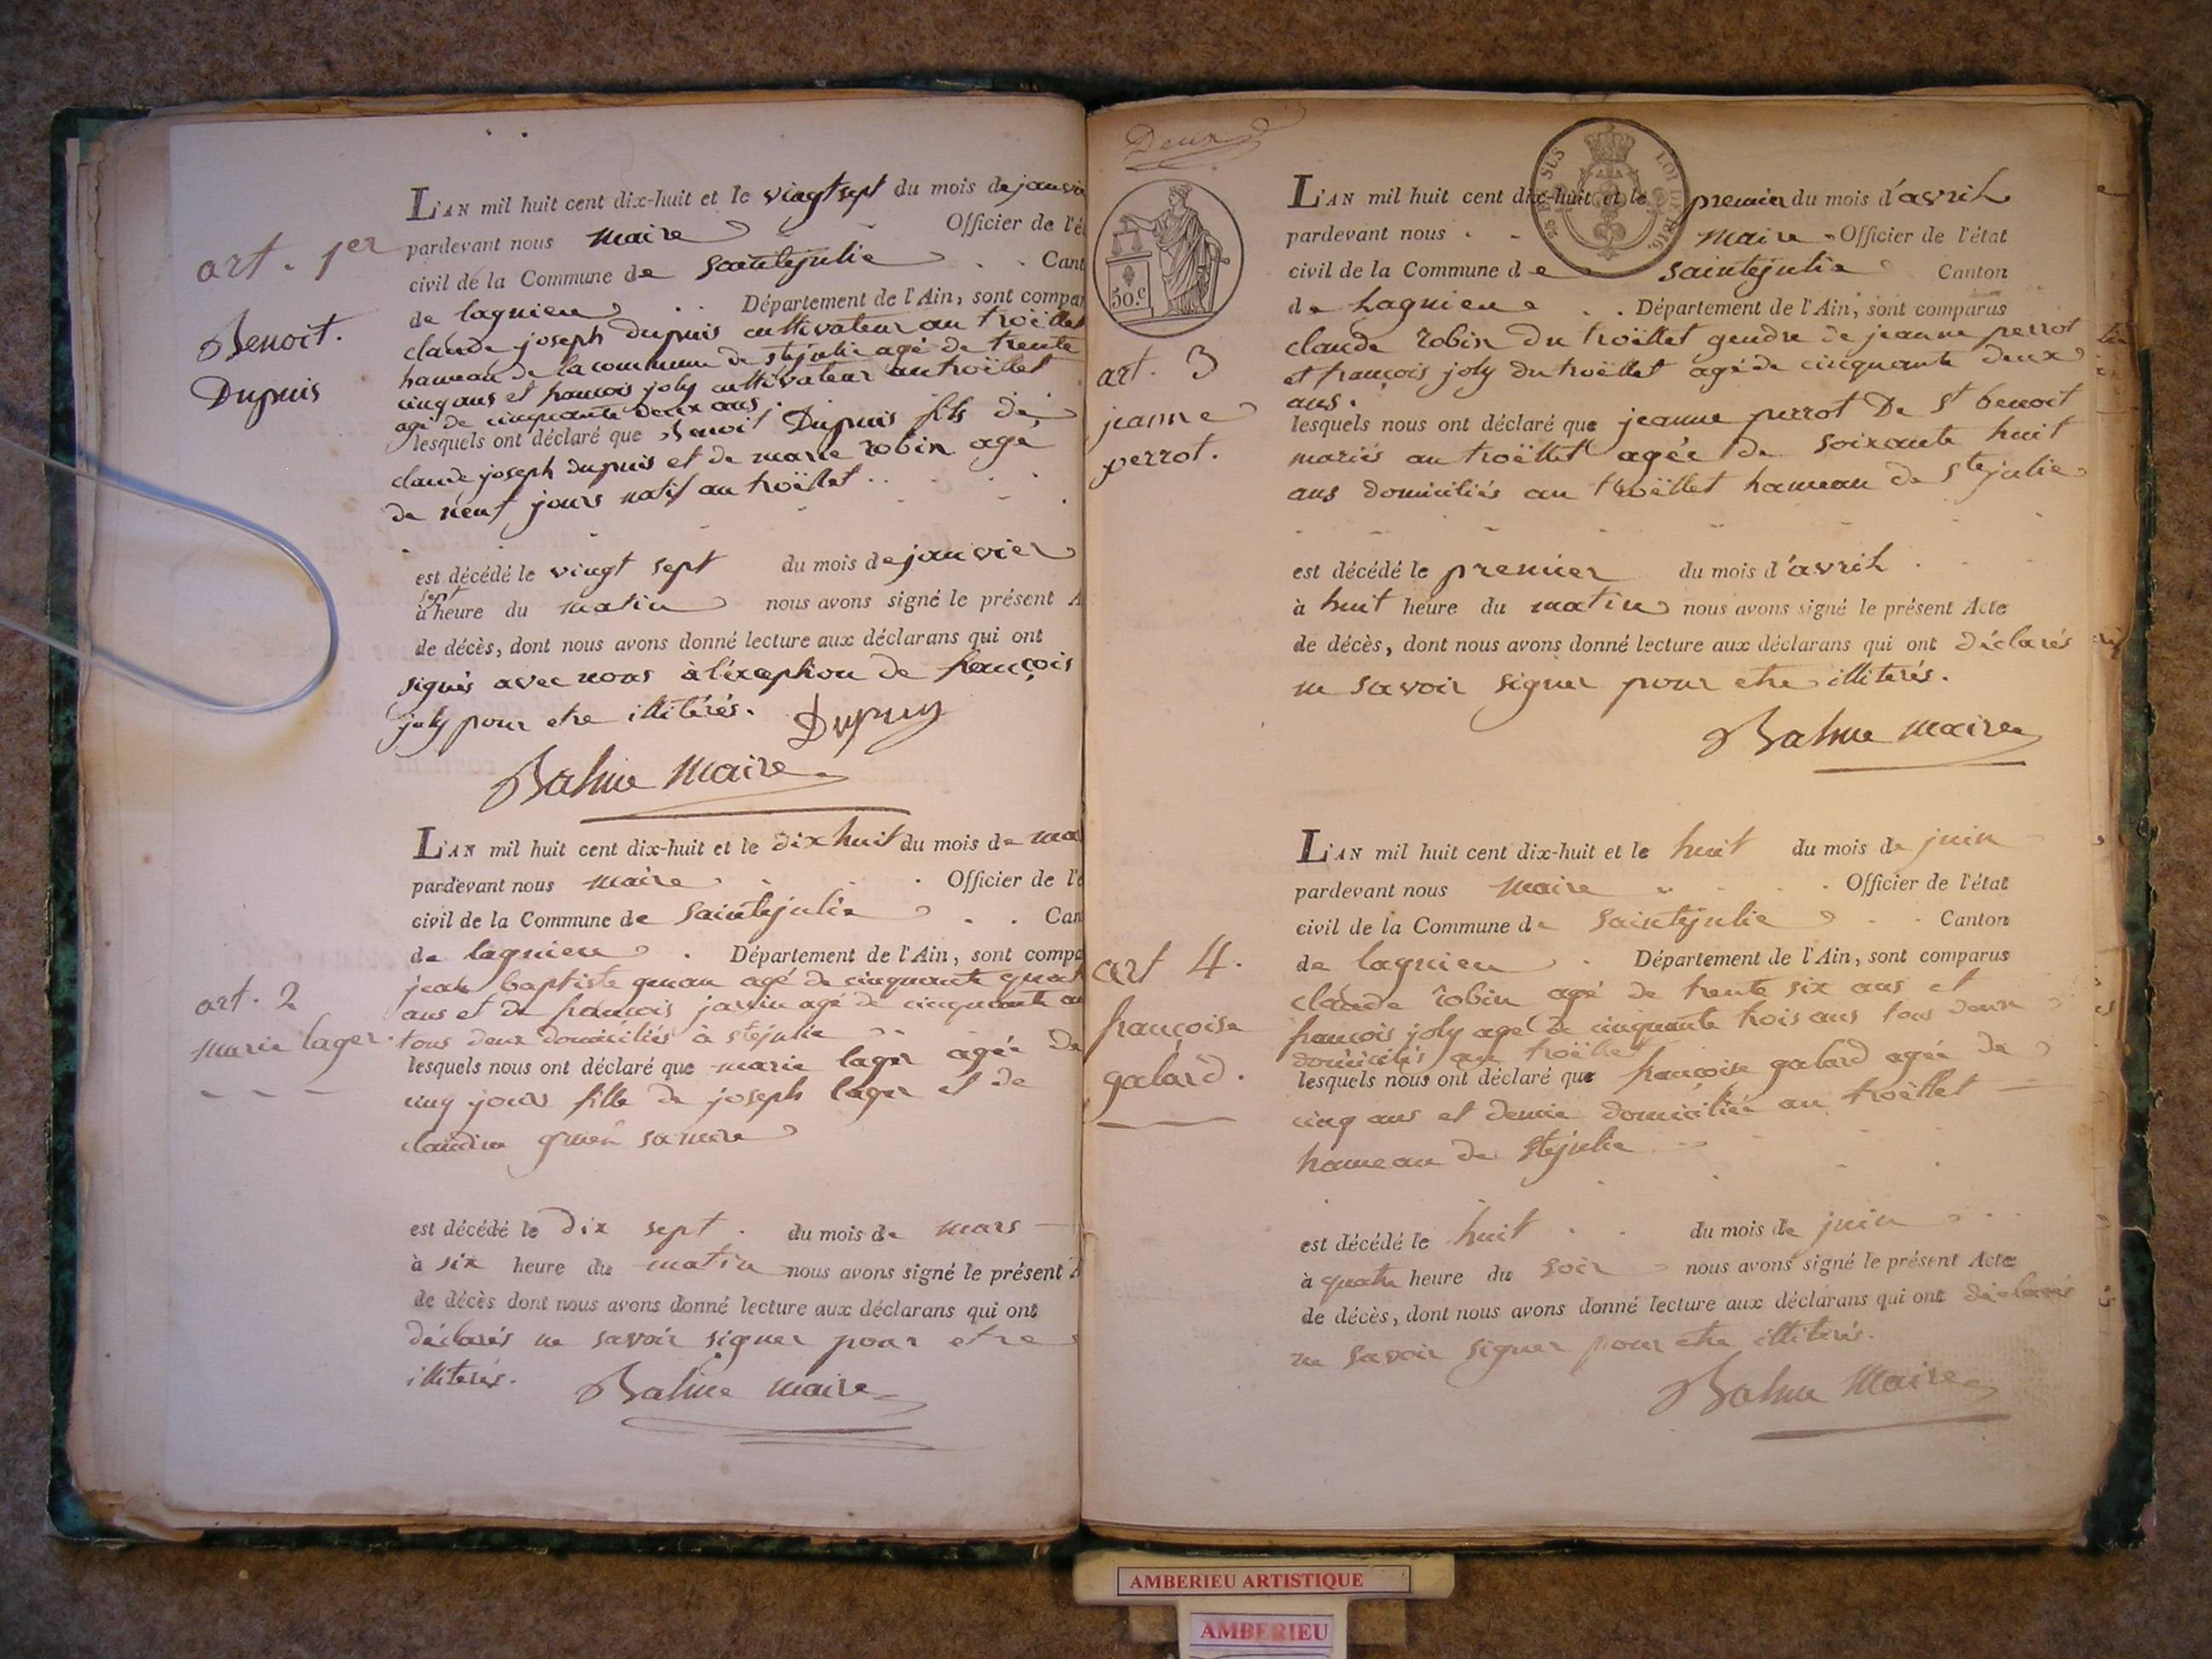 art. 1er
Benoit.
Dupuis
L'AN mil huit cent dix-huit et le vingt sept du mois de janvie
pardevant nous maire Officier de l'é
civil de la Commune de saintejulie Cant
de lagnieu Département de l'Ain, sont compar
claude joseph Dupuis cultivateur au troëllet
hameau de la commune de ste julie agé de trente
cinq ans et francois joly cultivateur au troëllet
agé de cinquante deux ans.
lesquels ont déclaré que Benoit Dupuis fils de
claude joseph dupuis et de marie robin agé
de neuf jours natif au troëllet
est décédé le vingt sept du mois de janvier
sept
à heure du matin nous avons signé le présent A
de décès, dont nous avons donné lecture aux déclarans qui ont
signés avec nous à l'éxeption de françois
joly pour etre illitérés. Dupuy
Balme maire
art. 2
marie lager.
L'AN mil huit cent dix-huit et le dix huit du mois de ma
pardevant nous maire Officier de l'é
civil de la Commune de saintejulie Can
de lagnieu Département de l'Ain, sont compa
jean baptiste agé de cinquante quat
ans et de francois agé de cinquante an
tous deux domiciliés à ste julie
lesquels nous ont déclaré que marie lager agée de
cinq jours fille de joseph lager et de
claudine sa mere
est décédé le dix sept du mois de mars
à six heure du matin nous avons signé le présent A
de décès dont nous avons donné lecture aux déclarans qui ont
déclarés ne savoir signer pour etre
illiterés. Balme maire
Deux
50.c
SUS LOI DE 1816.
art. 3
jeanne
perrot.
L'AN mil huit cent dix-huit et le premier du mois d'avril
pardevant nous maire Officier de l'état
civil de la Commune de saintejulie Canton
de Lagnieu Département de l'Ain, sont comparus
claude robin du troëllet gendre de jeanne perrot
et françois joly du troëllet agé de cinquante deux
ans.
lesquels nous ont déclaré que jeanne perrot De st benoit
mariés au troëllet agée de soixante huit
ans domiciliés au troëllet hameau de ste julie
est décédé le premier du mois d'avril
à huit heure du matin nous avons signé le présent Acte
de décès, dont nous avons donné lecture aux déclarans qui ont déclarés
ne savoir signer pour etre illiterés.
Balme maire
art 4.
françoise
galard.
L'AN mil huit cent dix-huit et le huit du mois de juin
pardevant nous maire Officier de l'état
civil de la Commune de saintejulie Canton
de lagnieu Département de l'Ain, sont comparus
claude robin agé de trente six ans et
francois joly agé de cinquante trois ans tous deux
domiciliés au troëllet
lesquels nous ont déclaré que françoise galard agée de
cinq ans et demie domiciliée au troëllet
hameau de ste julie
est décédé le huit du mois de juin
à quatre heure du soir nous avons signé le présent Acte
de décès, dont nous avons donné lecture aux déclarans qui ont déclarés
ne savoir signer pour etre illiterés.
Balme Maire
AMBERIEU ARTISTIQUE
AMBERIEU